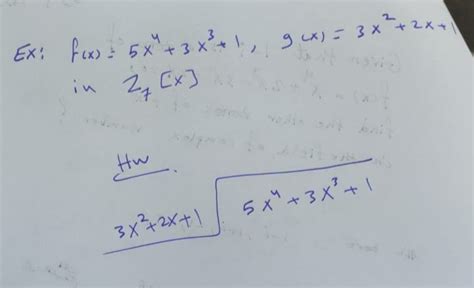 Ex: f(x) = 5x⁴ + 3x³ + 1, g(x) = 3x² + 2x + 1
in Z₇[x]
Hw
3x²+2x+1 5x⁴ + 3x³ + 1